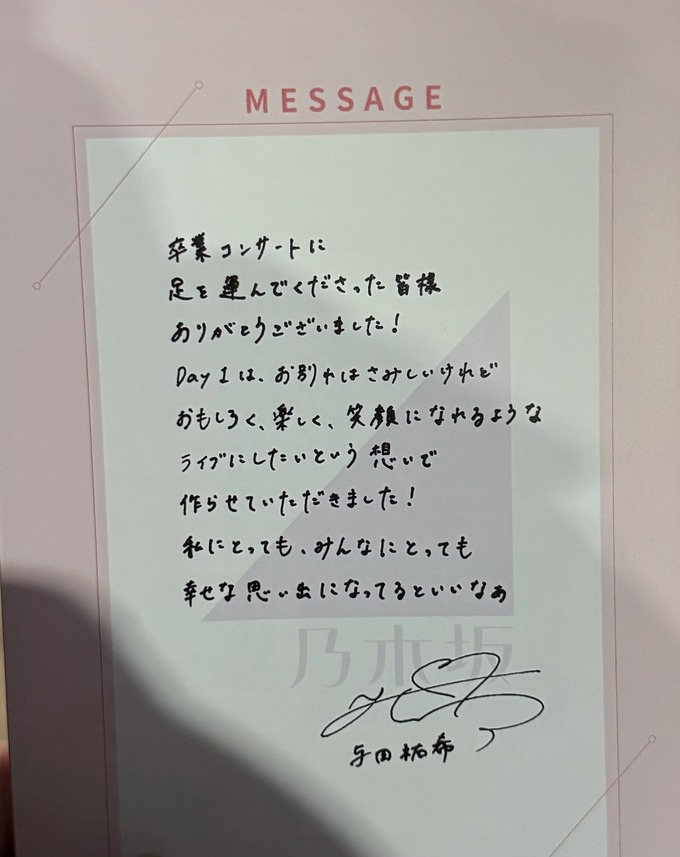 MESSAGE
卒業コンサートに
足を運んでくださった皆様
ありがとうございました!
Day 1は、お別れはさみしいけれど
おもしろく、楽しく、笑顔になれるような
ライブにしたいという想いで
作らせていただきました!
私にとっても、みんなにとっても
幸せな思い出になってるといいなぁ
乃木坂
与田祐希